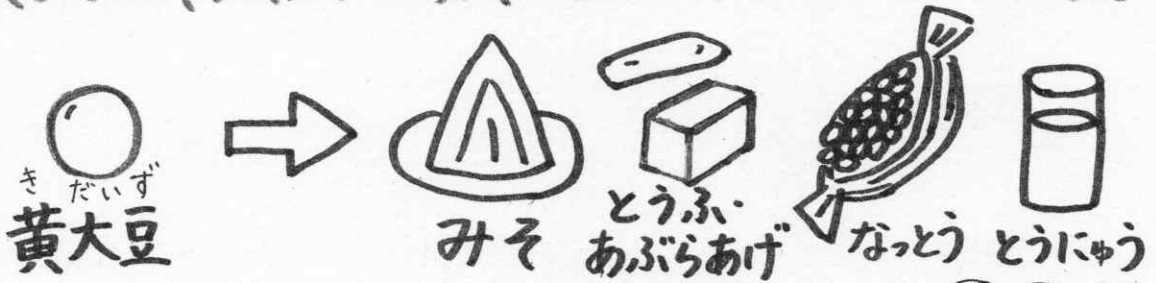 きだいず
黄大豆
みそ
とうふ・
あぶらあげ
なっとう
とうにゅう